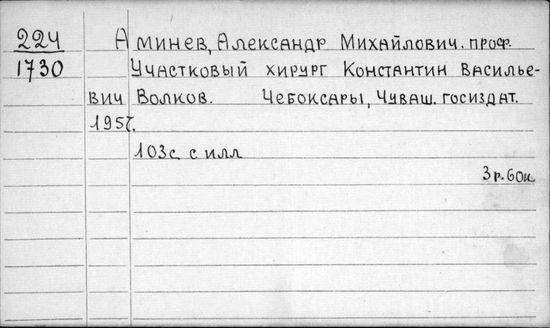 224 Аминев, Александр Михайлович. проф.
1730 Участковый хирург Константин Василье-
вич Волков. Чебоксары, Чуваш. госиздат.
1957.
103с. с илл
3р. 60к.